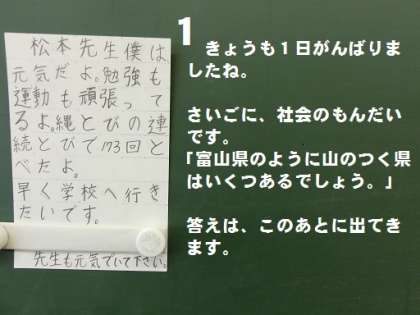 松本先生僕は、
元気だよ。勉強も
運動も頑張って
るよ。縄とびの連
続とびで173回と
べたよ。
早く学校へ行き
たいです。
先生も元気でいて下さい。
1
きょうも１日がんばりま
したね。
さいごに、社会のもんだい
です。
「富山県のように山のつく県
はいくつあるでしょう。」
答えは、このあとに出てき
ます。